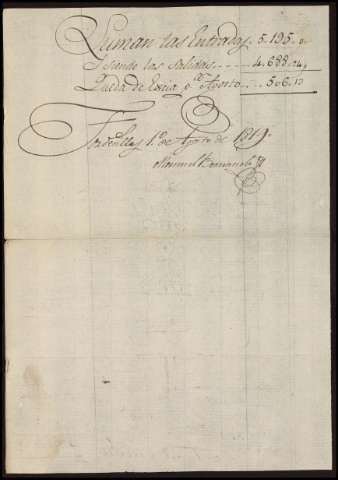 Suman las Entradas 5.195..
siendo las salidas.... 4.688..24
Queda de Exâ pª Agosto.... 506..
Tordesillas 1º de Agosto de 1819.
Manuel